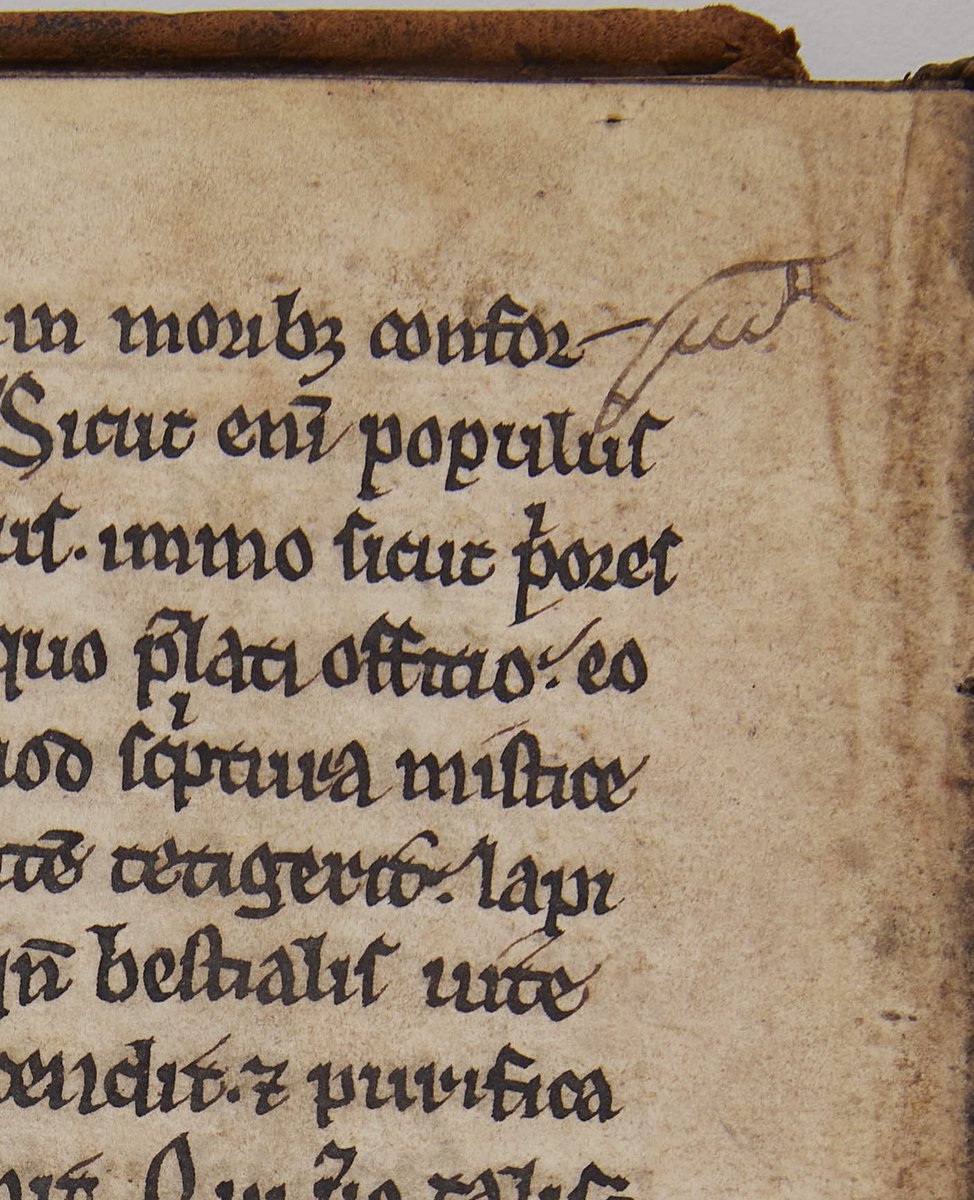 in moribꝫ confor-
Sicut eni̅ populus
us. immo sicut pͥores
quo p̅lati offitio: eo
uod scͥptura mistice
te̅ tetigerit. lapi
qn̅ bestialis uite
cendit. ⁊ purifica